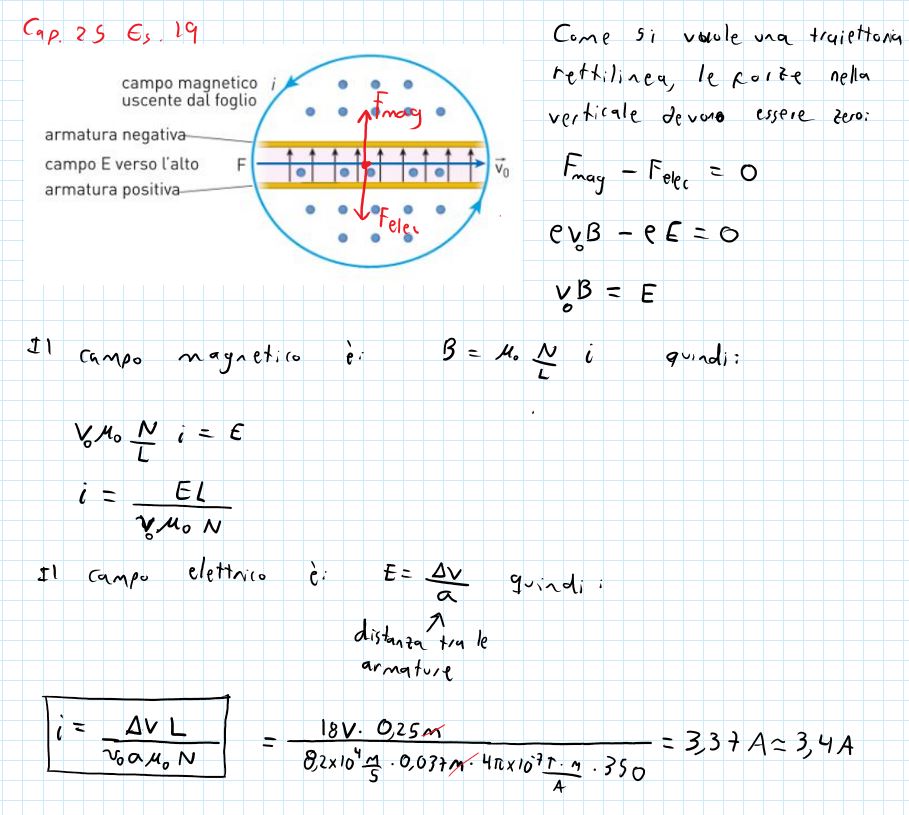 Cap. 25 Es. 19
campo magnetico i
uscente dal foglio
Fmag
armatura negativa
campo E verso l'alto F
v₀
armatura positiva
Felec
Come si vuole una traiettoria
rettilinea, le forze nella
verticale devono essere zero:
Fmag - Felec = 0
ev₀B - eE = 0
v₀B = E
Il campo magnetico è: B = μ₀ N/L i quindi:
v₀μ₀ N/L i = E
i = EL / v₀μ₀N
Il campo elettrico è: E = ΔV/a quindi:
distanza tra le
armature
i = ΔV L / v₀aμ₀N = 18V · 0,25m / 8,2x10⁴ m/s · 0,037m · 4πx10⁻⁷ T·m/A · 350 = 3,37 A ≃ 3,4A